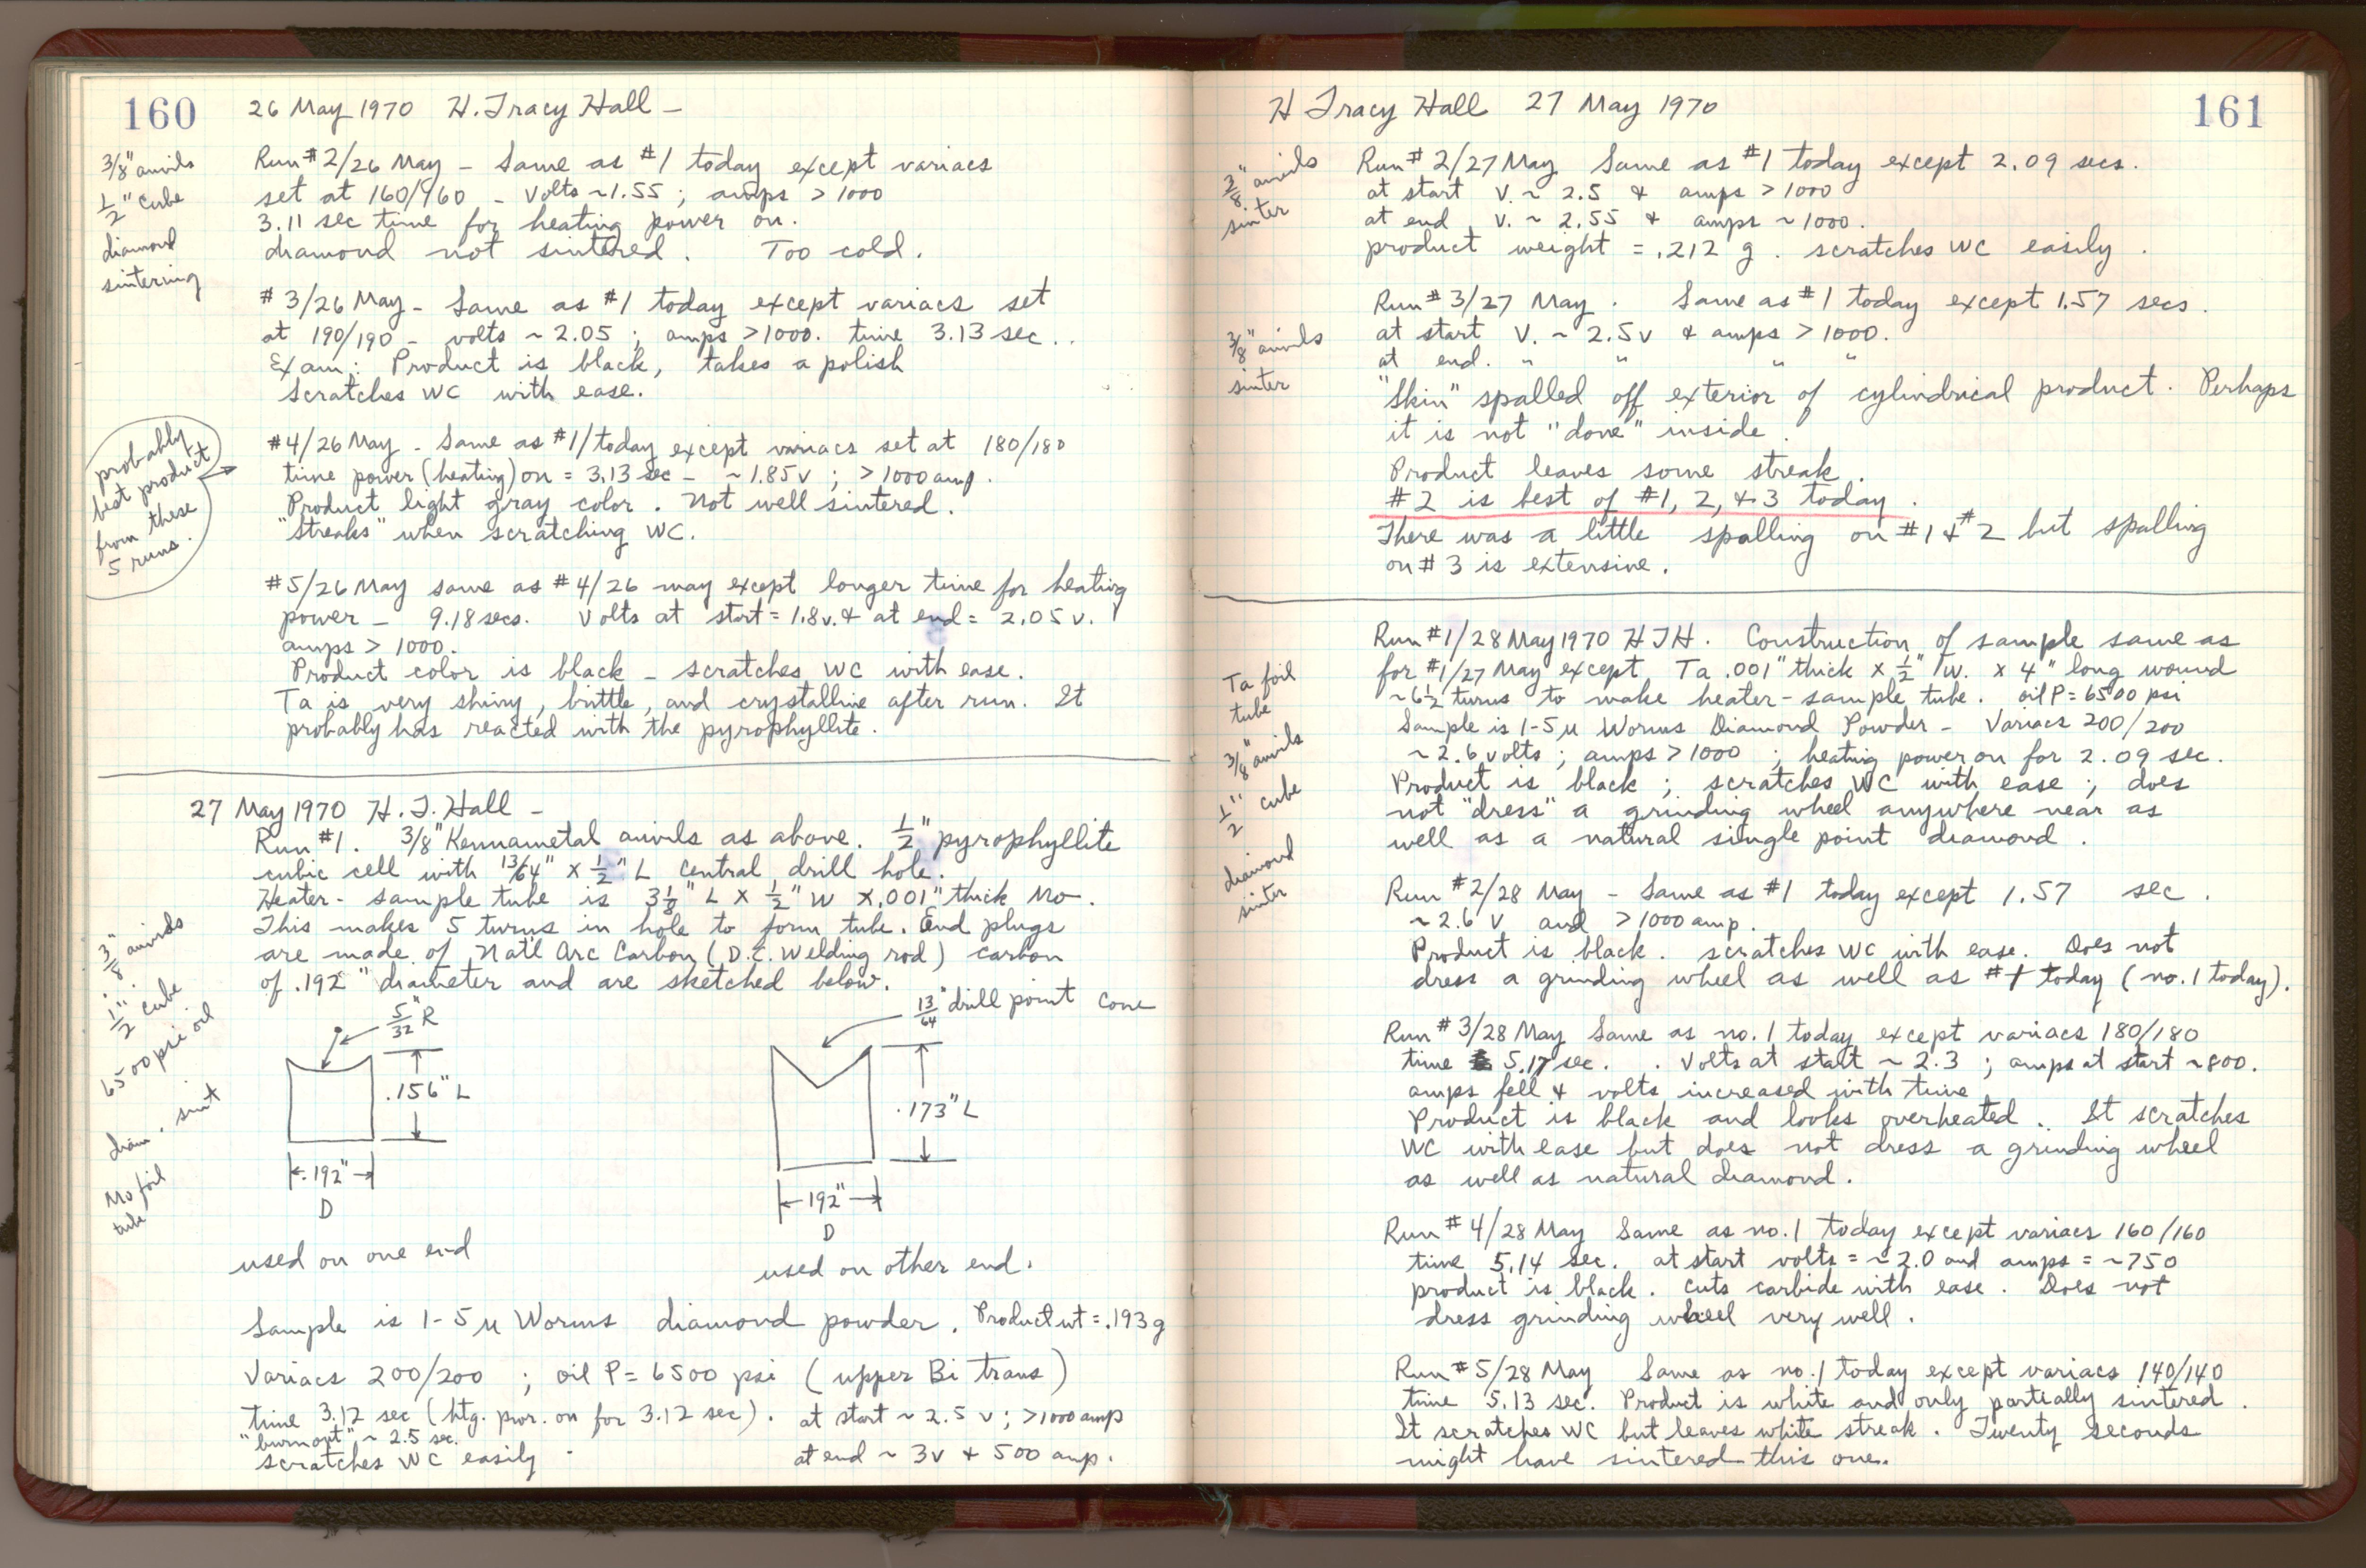 160
26 May 1970 H. Tracy Hall -
3/8" anvils
1/2" cube
diamond
sintering
Run #2/26 May - Same as #1 today except variacs
set at 160/160 - Volts ~1.55 ; amps > 1000
3.11 sec time for heating power on.
diamond not sintered. Too cold.
#3/26 May - Same as #1 today except variacs set
at 190/190 - volts ~ 2.05 ; amps >1000. time 3.13 sec..
Exam: Product is black, takes a polish
Scratches WC with ease.
probably
best product
from these
5 runs.
#4/26 May - Same as #1/today except variacs set at 180/180
time power (heating) on = 3.13 sec - ~1.85v ; >1000 amp.
Product light gray color. Not well sintered.
"Streaks" when scratching WC.
#5/26 May same as #4/26 may except longer time for heating
power - 9.18 secs. Volts at start = 1.8v. & at end = 2.05 v.
amps > 1000.
Product color is black - scratches WC with ease.
Ta is very shiny, brittle, and crystalline after run. It
probably has reacted with the pyrophyllite.
27 May 1970 H. T. Hall -
Run #1. 3/8" Kennametal anvils as above. 1/2" pyrophyllite
cubic cell with 13/64" x 1/2" L central drill hole.
Heater - sample tube is 3 1/8" L x 1/2" W x .001" thick Mo.
This makes 5 turns in hole to form tube. End plugs
are made of Nat'l Arc Carbon (D.C. Welding rod) carbon
of .192" diameter and are sketched below.
3/8" anvils
1/2" cube
6500 psi oil
diam. sint
Mo foil
tube
5/32" R
13/64" drill point cone
.156" L
.173" L
.192"
D
.192"
D
used on one end
used on other end.
Sample is 1-5 μ Worms diamond powder. Product wt = .193 g
Variacs 200/200 ; oil P = 6500 psi (upper Bi trans)
time 3.12 sec (htg. pwr. on for 3.12 sec). at start ~ 2.5 v ; >1000 amp
"burnout" ~ 2.5 sec.
scratches WC easily at end ~ 3v & 500 amp.
H Tracy Hall 27 May 1970
161
3/8" anvils
sinter
Run # 2/27 May Same as #1 today except 2.09 secs.
at start V. ~ 2.5 & amps > 1000
at end V. ~ 2.55 & amps ~ 1000.
product weight = .212 g. scratches WC easily.
3/8" anvils
sinter
Run # 3/27 May. Same as #1 today except 1.57 secs.
at start V. ~ 2.5v & amps > 1000.
at end. " " " "
"Skin" spalled off exterior of cylindrical product. Perhaps
it is not "done" inside.
Product leaves some streak.
#2 is best of #1, 2, & 3 today.
There was a little spalling on #1 & #2 but spalling
on # 3 is extensive.
Ta foil
tube
3/8" anvils
1/2" cube
diamond
sinter
Run #1/28 May 1970 HTH. Construction of sample same as
for #1/27 May except Ta .001" thick x 1/2" W. x 4" long wound
~6 1/2 turns to make heater-sample tube. oil P = 6500 psi
Sample is 1-5 μ Worms Diamond Powder - Variacs 200/200
~ 2.6 volts ; amps > 1000 ; heating power on for 2.09 sec.
Product is black ; scratches WC with ease ; does
not "dress" a grinding wheel anywhere near as
well as a natural single point diamond.
Run #2/28 May - Same as #1 today except 1.57 sec.
~ 2.6 V and > 1000 amp.
Product is black. scratches WC with ease. Does not
dress a grinding wheel as well as #1 today (no. 1 today).
Run #3/28 May Same as no. 1 today except variacs 180/180
time 5.17 sec. . Volts at start ~ 2.3 ; amps at start ~800.
amps fell & volts increased with time
Product is black and looks overheated. It scratches
WC with ease but does not dress a grinding wheel
as well as natural diamond.
Run # 4/28 May Same as no. 1 today except variacs 160/160
time 5.14 sec. at start volts = ~ 2.0 and amps = ~750
product is black. Cuts carbide with ease. Does not
dress grinding wheel very well.
Run #5/28 May Same as no. 1 today except variacs 140/140
time 5.13 sec. Product is white and only partially sintered.
It scratches WC but leaves white streak. Twenty seconds
might have sintered this one.